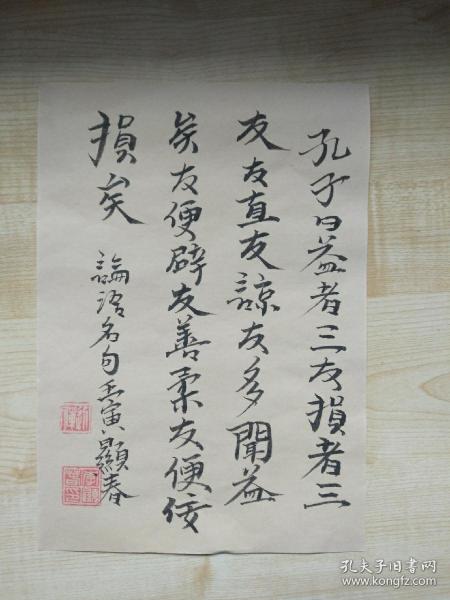 孔子曰益者三友損者三
友友直友諒友多聞益
矣友便辟友善柔友便佞
損矣
論語名句壬寅顯春
孔夫子旧书网
www.kongfz.com